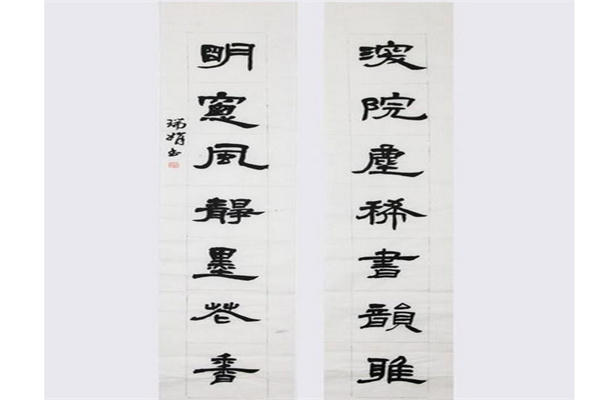 深院塵稀書韻雅
明窻風靜墨花香
瑞娟书